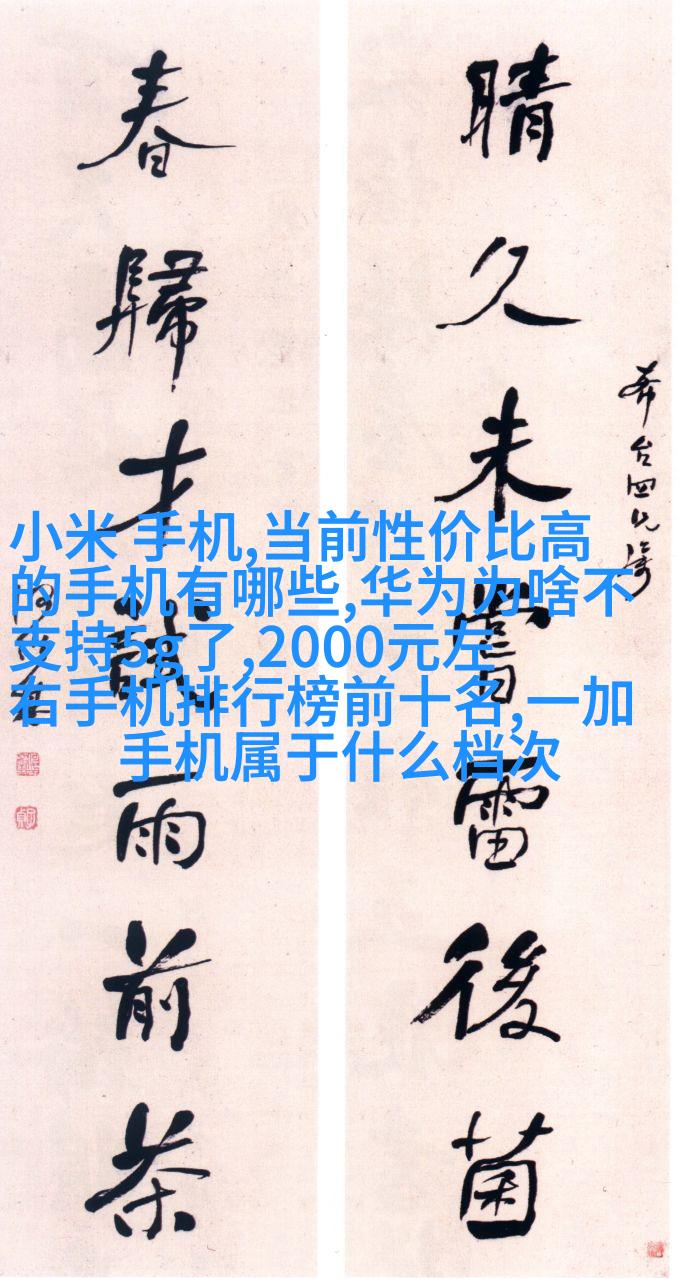 晴久未嘗雷後菌
春歸才試雨前茶
小米 手机,当前性价比高
的手机有哪些,华为为啥不
支持5g了,2000元左
右手机排行榜前十名,一加
手机属于什么档次